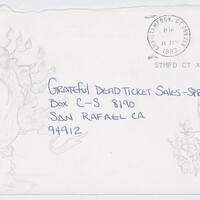 PM
1993
STMFD CT
GRATEFUL DEAD TICKET SALES-SPE
BOX C-S 8190
SAN RAFAEL CA
94912